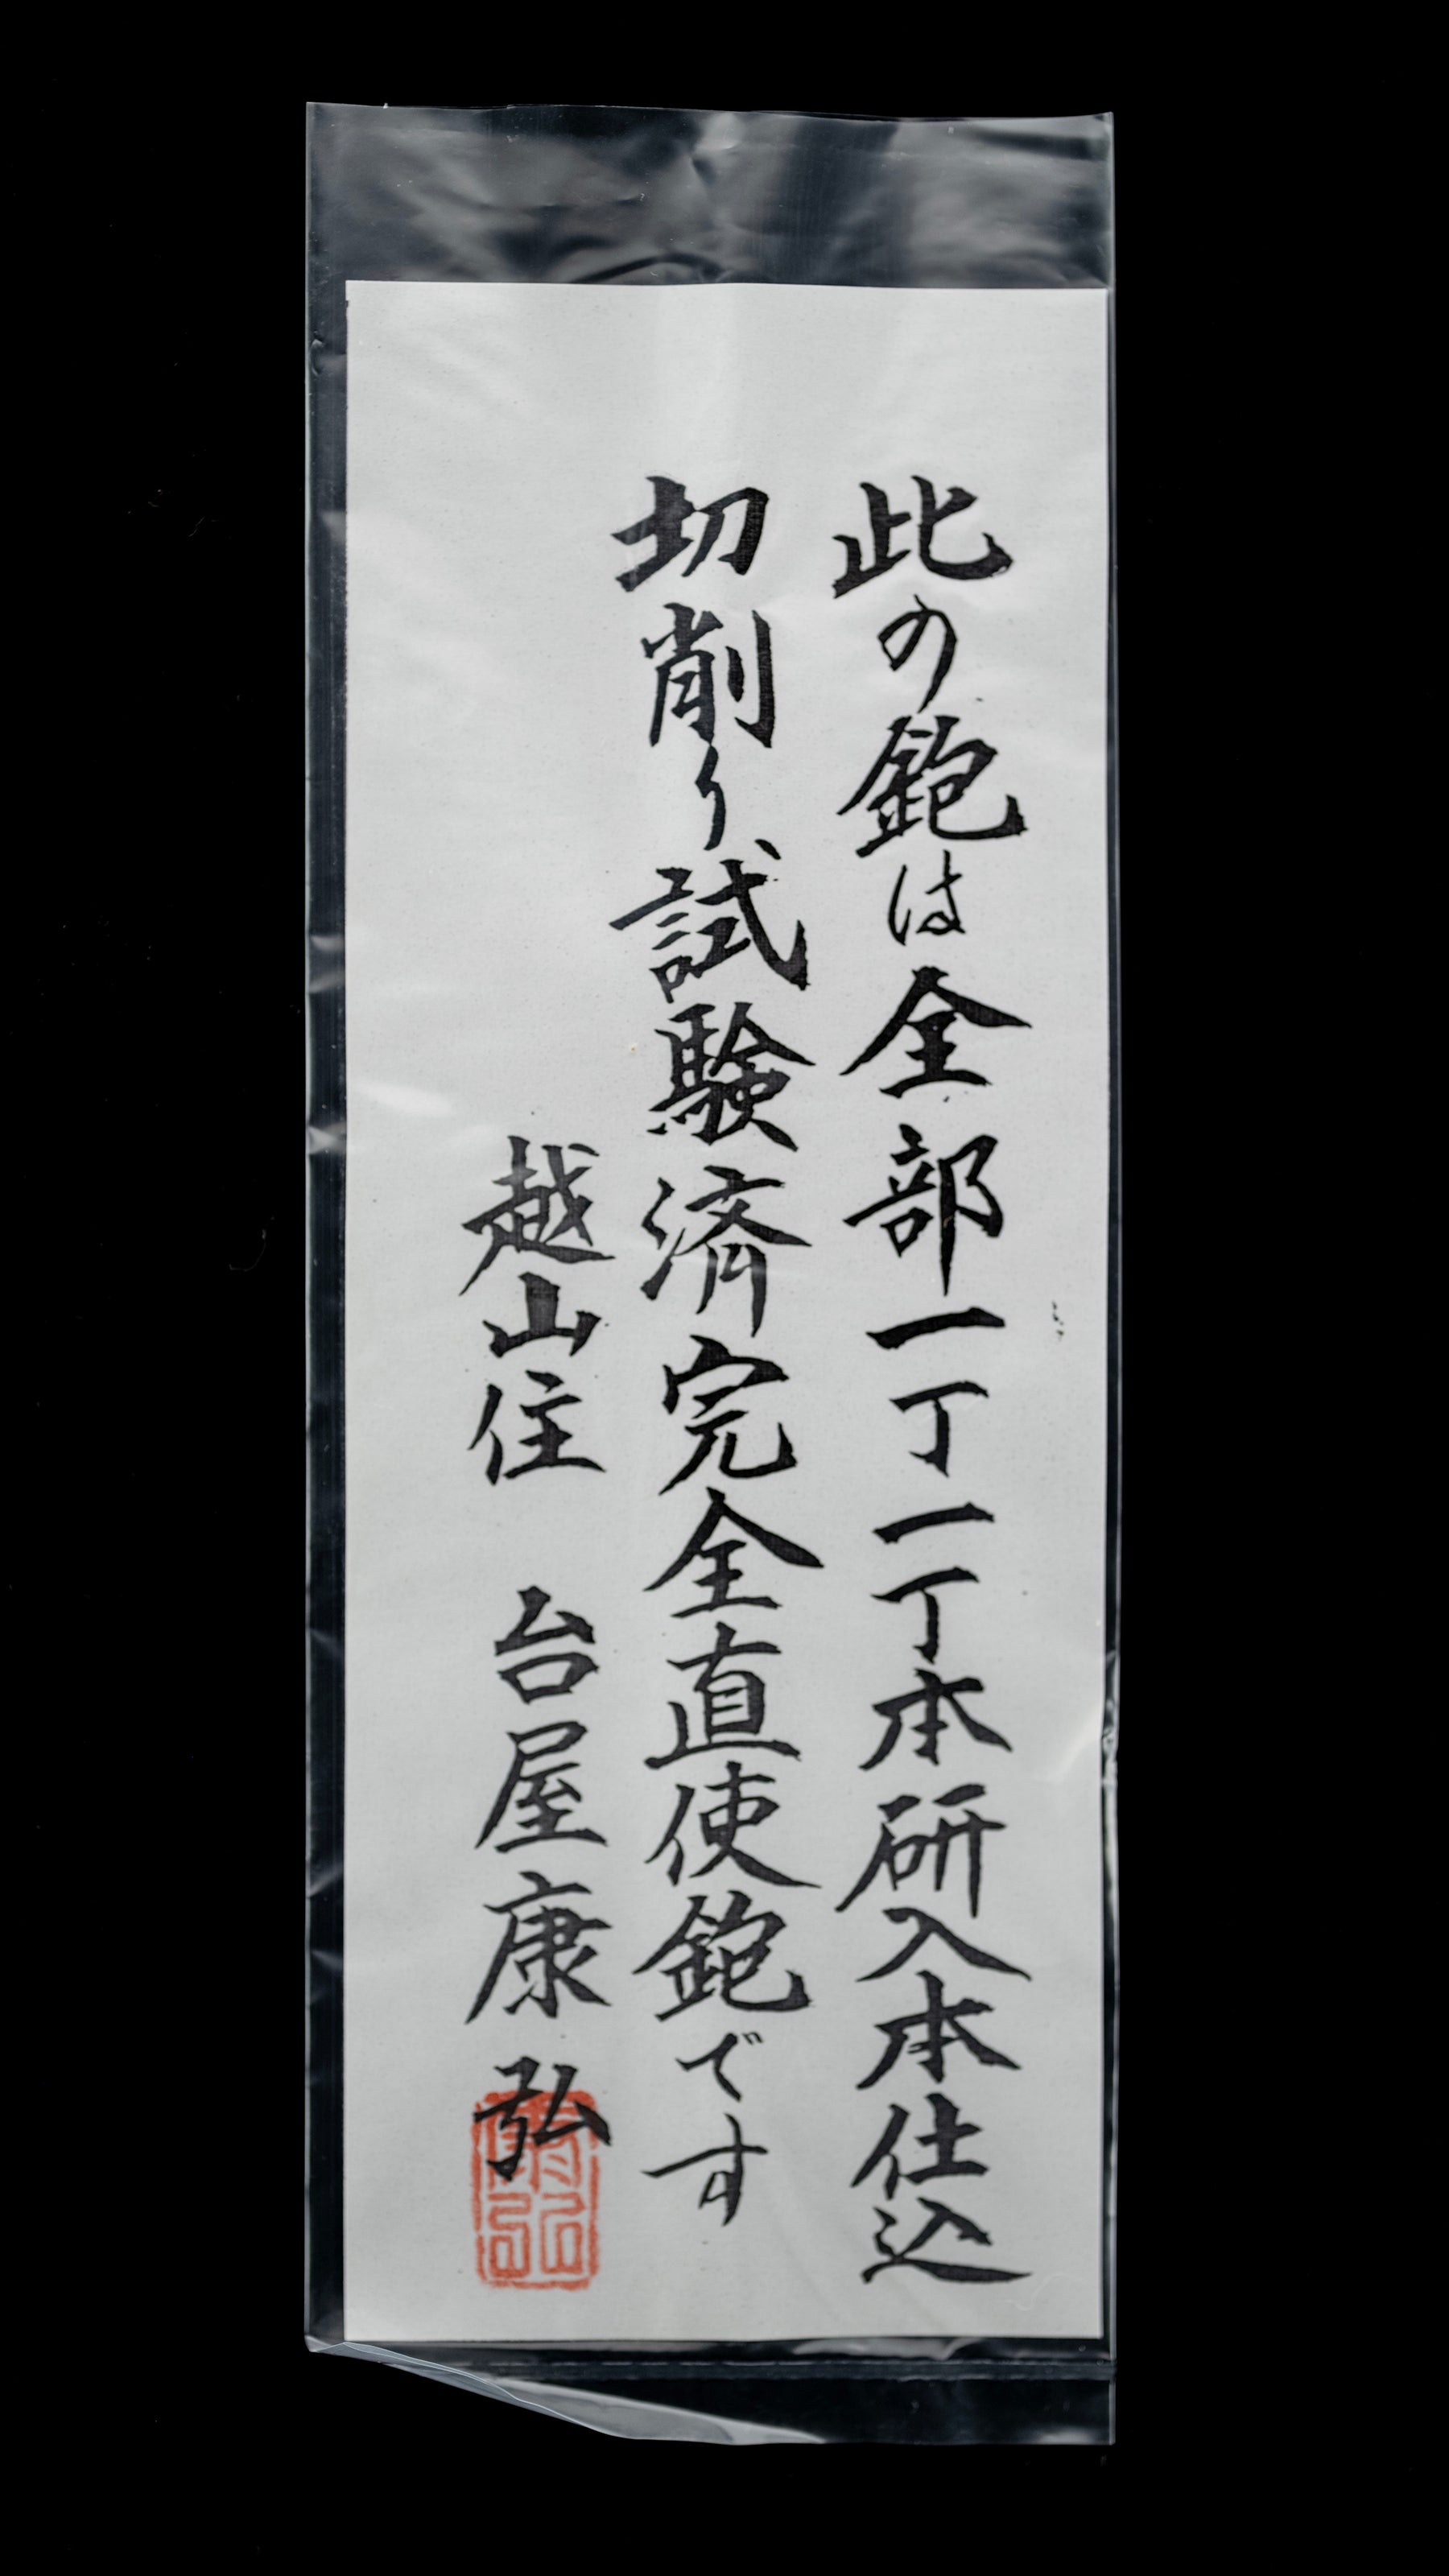 此の鉋は全部一丁一丁本研入本仕込
切削り試験済完全直使鉋です
越山住 台屋康弘
康弘